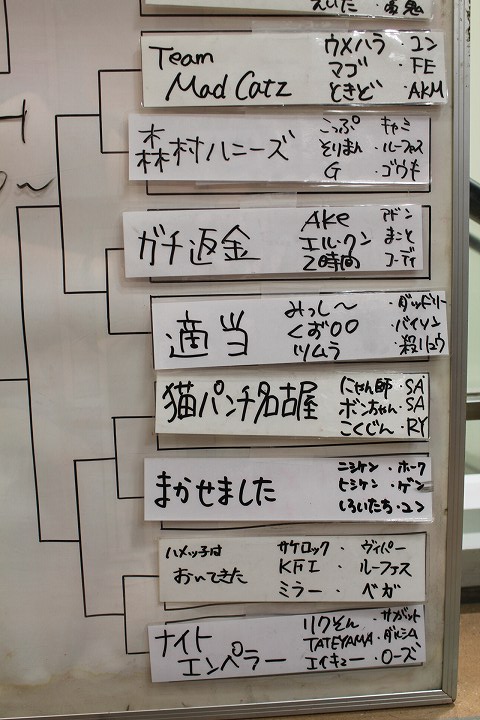 Team
Mad Catz
ウメハラ ・ユン
マゴ ・FE
ときど ・AKM
森村ハニーズ
こっぷ キャミ
そりまん ・ルーファス
G ・ゴウキ
ガチ返金
AKe アドン
エル・クン まこと
2時間 コーディ
適当
みっし〜 ・ダッドリー
くお○○ ・バイソン
ツムラ ・殺リュウ
猫パンチ名古屋
にゃん師・SA
ボンちゃん・SA
こくじん・RY
まかせました
ニシケン・ホーク
ヒシケン・ゲン
しろいたち・ユン
ハメッ子は
おいてきた
サケロック・ヴィパー
KFI ・ルーファス
ミラー ・ベガ
ナイト
エンペラー
リクそん・サガット
TATEYAMA・ダルシム
エイキュー・ローズ